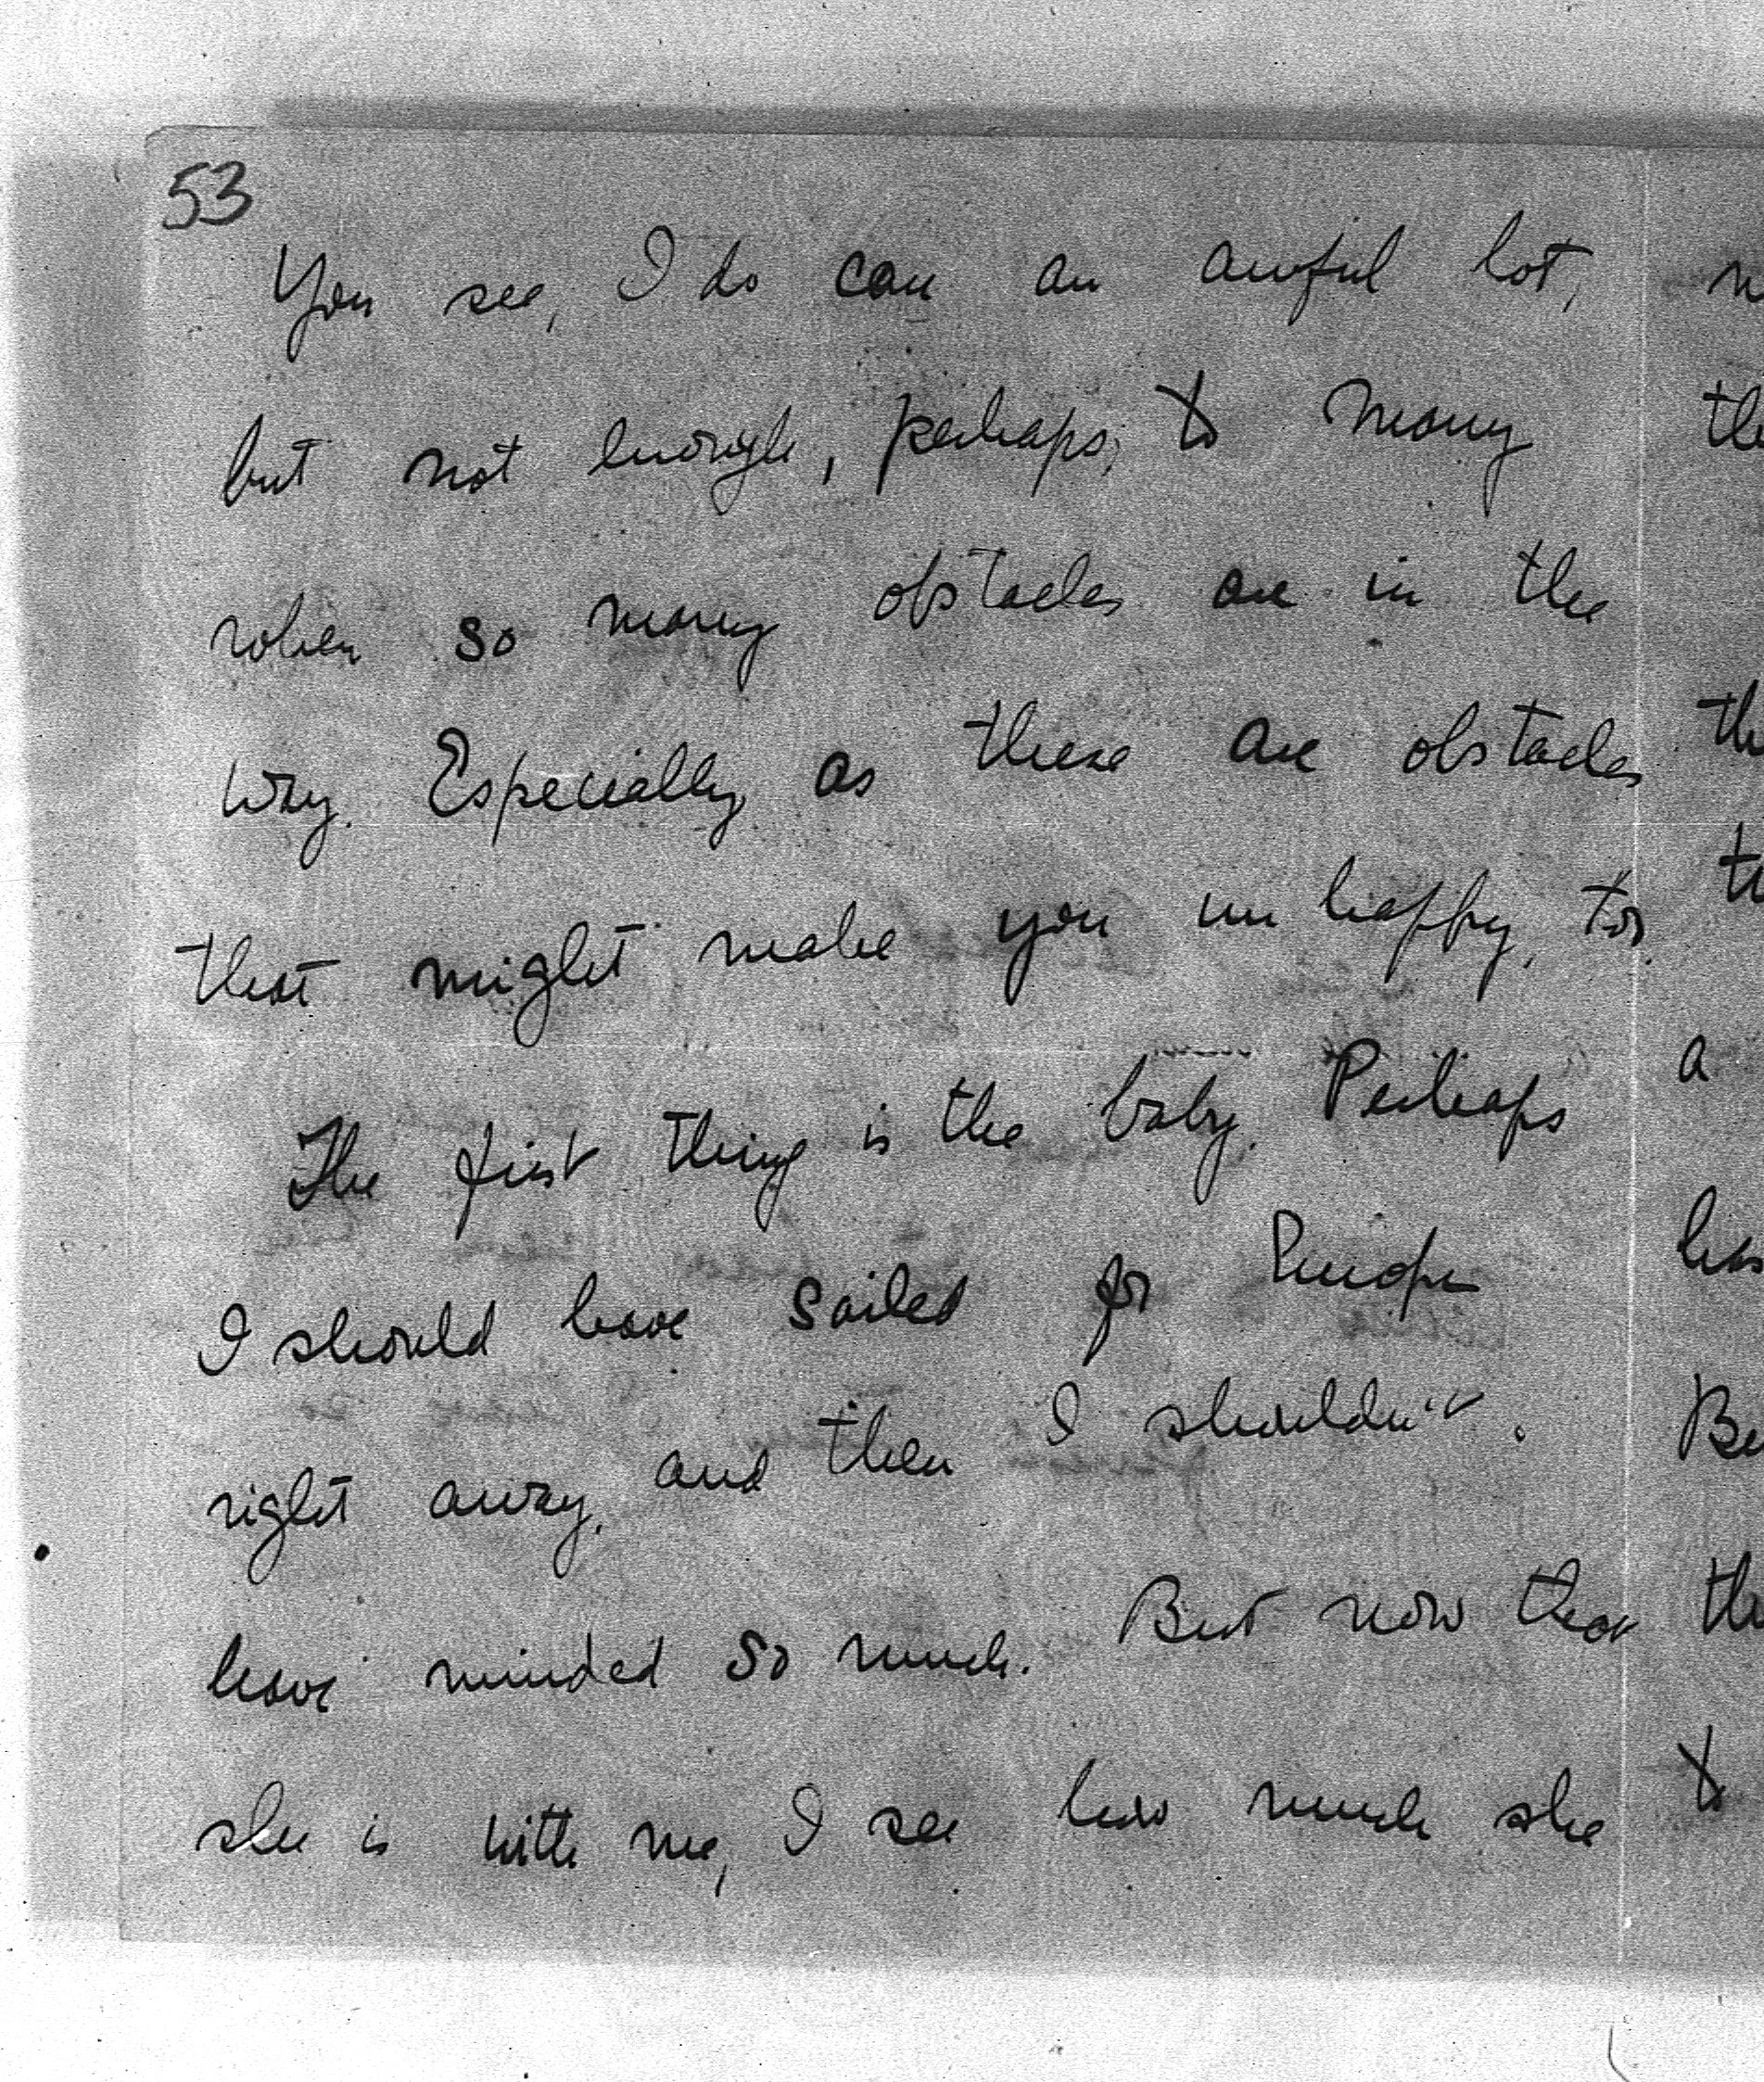 53
You see, I do care an awful lot,
but not enough, perhaps, to marry
when so many obstacles are in the
way. Especially as these are obstacles
that might make you unhappy, too.
The first thing is the baby. Perhaps
I should have sailed for Europe
right away, and then I shouldn't
have minded so much. But now that
she is with me, I see how much she